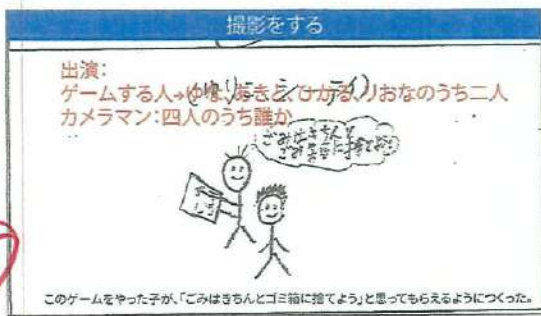 撮影をする
出演：
ゲームする人→ゆな、あきと、ひかる、りおなのうち二人
カメラマン：四人のうち誰か
ごみはきちんと
このゲームをやった子が、「ごみはきちんとゴミ箱に捨てよう」と思ってもらえるようにつくった。